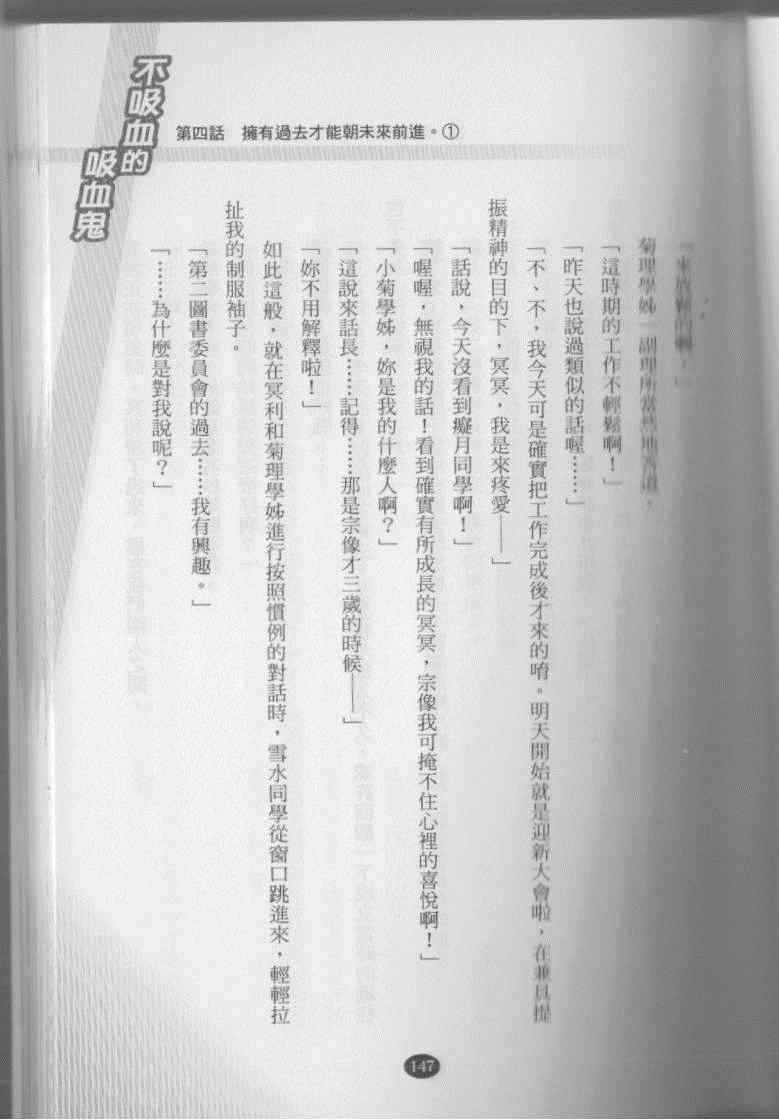 不吸血的
吸血鬼
第四話　擁有過去才能朝未來前進。①
菊理學姊一副理所當然地答道，
「這時期的工作不輕鬆啊！」
「昨天也說過類似的話喔……」
「不、不，我今天可是確實把工作完成後才來的唷。明天開始就是迎新大會啦，在兼具提
振精神的目的下，冥冥，我是來疼愛——」
「話說，今天沒看到癡月同學啊！」
「喔喔，無視我的話！看到確實有所成長的冥冥，宗像我可掩不住心裡的喜悅啊！」
「小菊學姊，妳是我的什麼人啊？」
「這說來話長……記得……那是宗像才三歲的時候——」
「妳不用解釋啦！」
如此這般，就在冥利和菊理學姊進行按照慣例的對話時，雪水同學從窗口跳進來，輕輕拉
扯我的制服袖子。
「第二圖書委員會的過去……我有興趣。」
「……為什麼是對我說呢？」
147